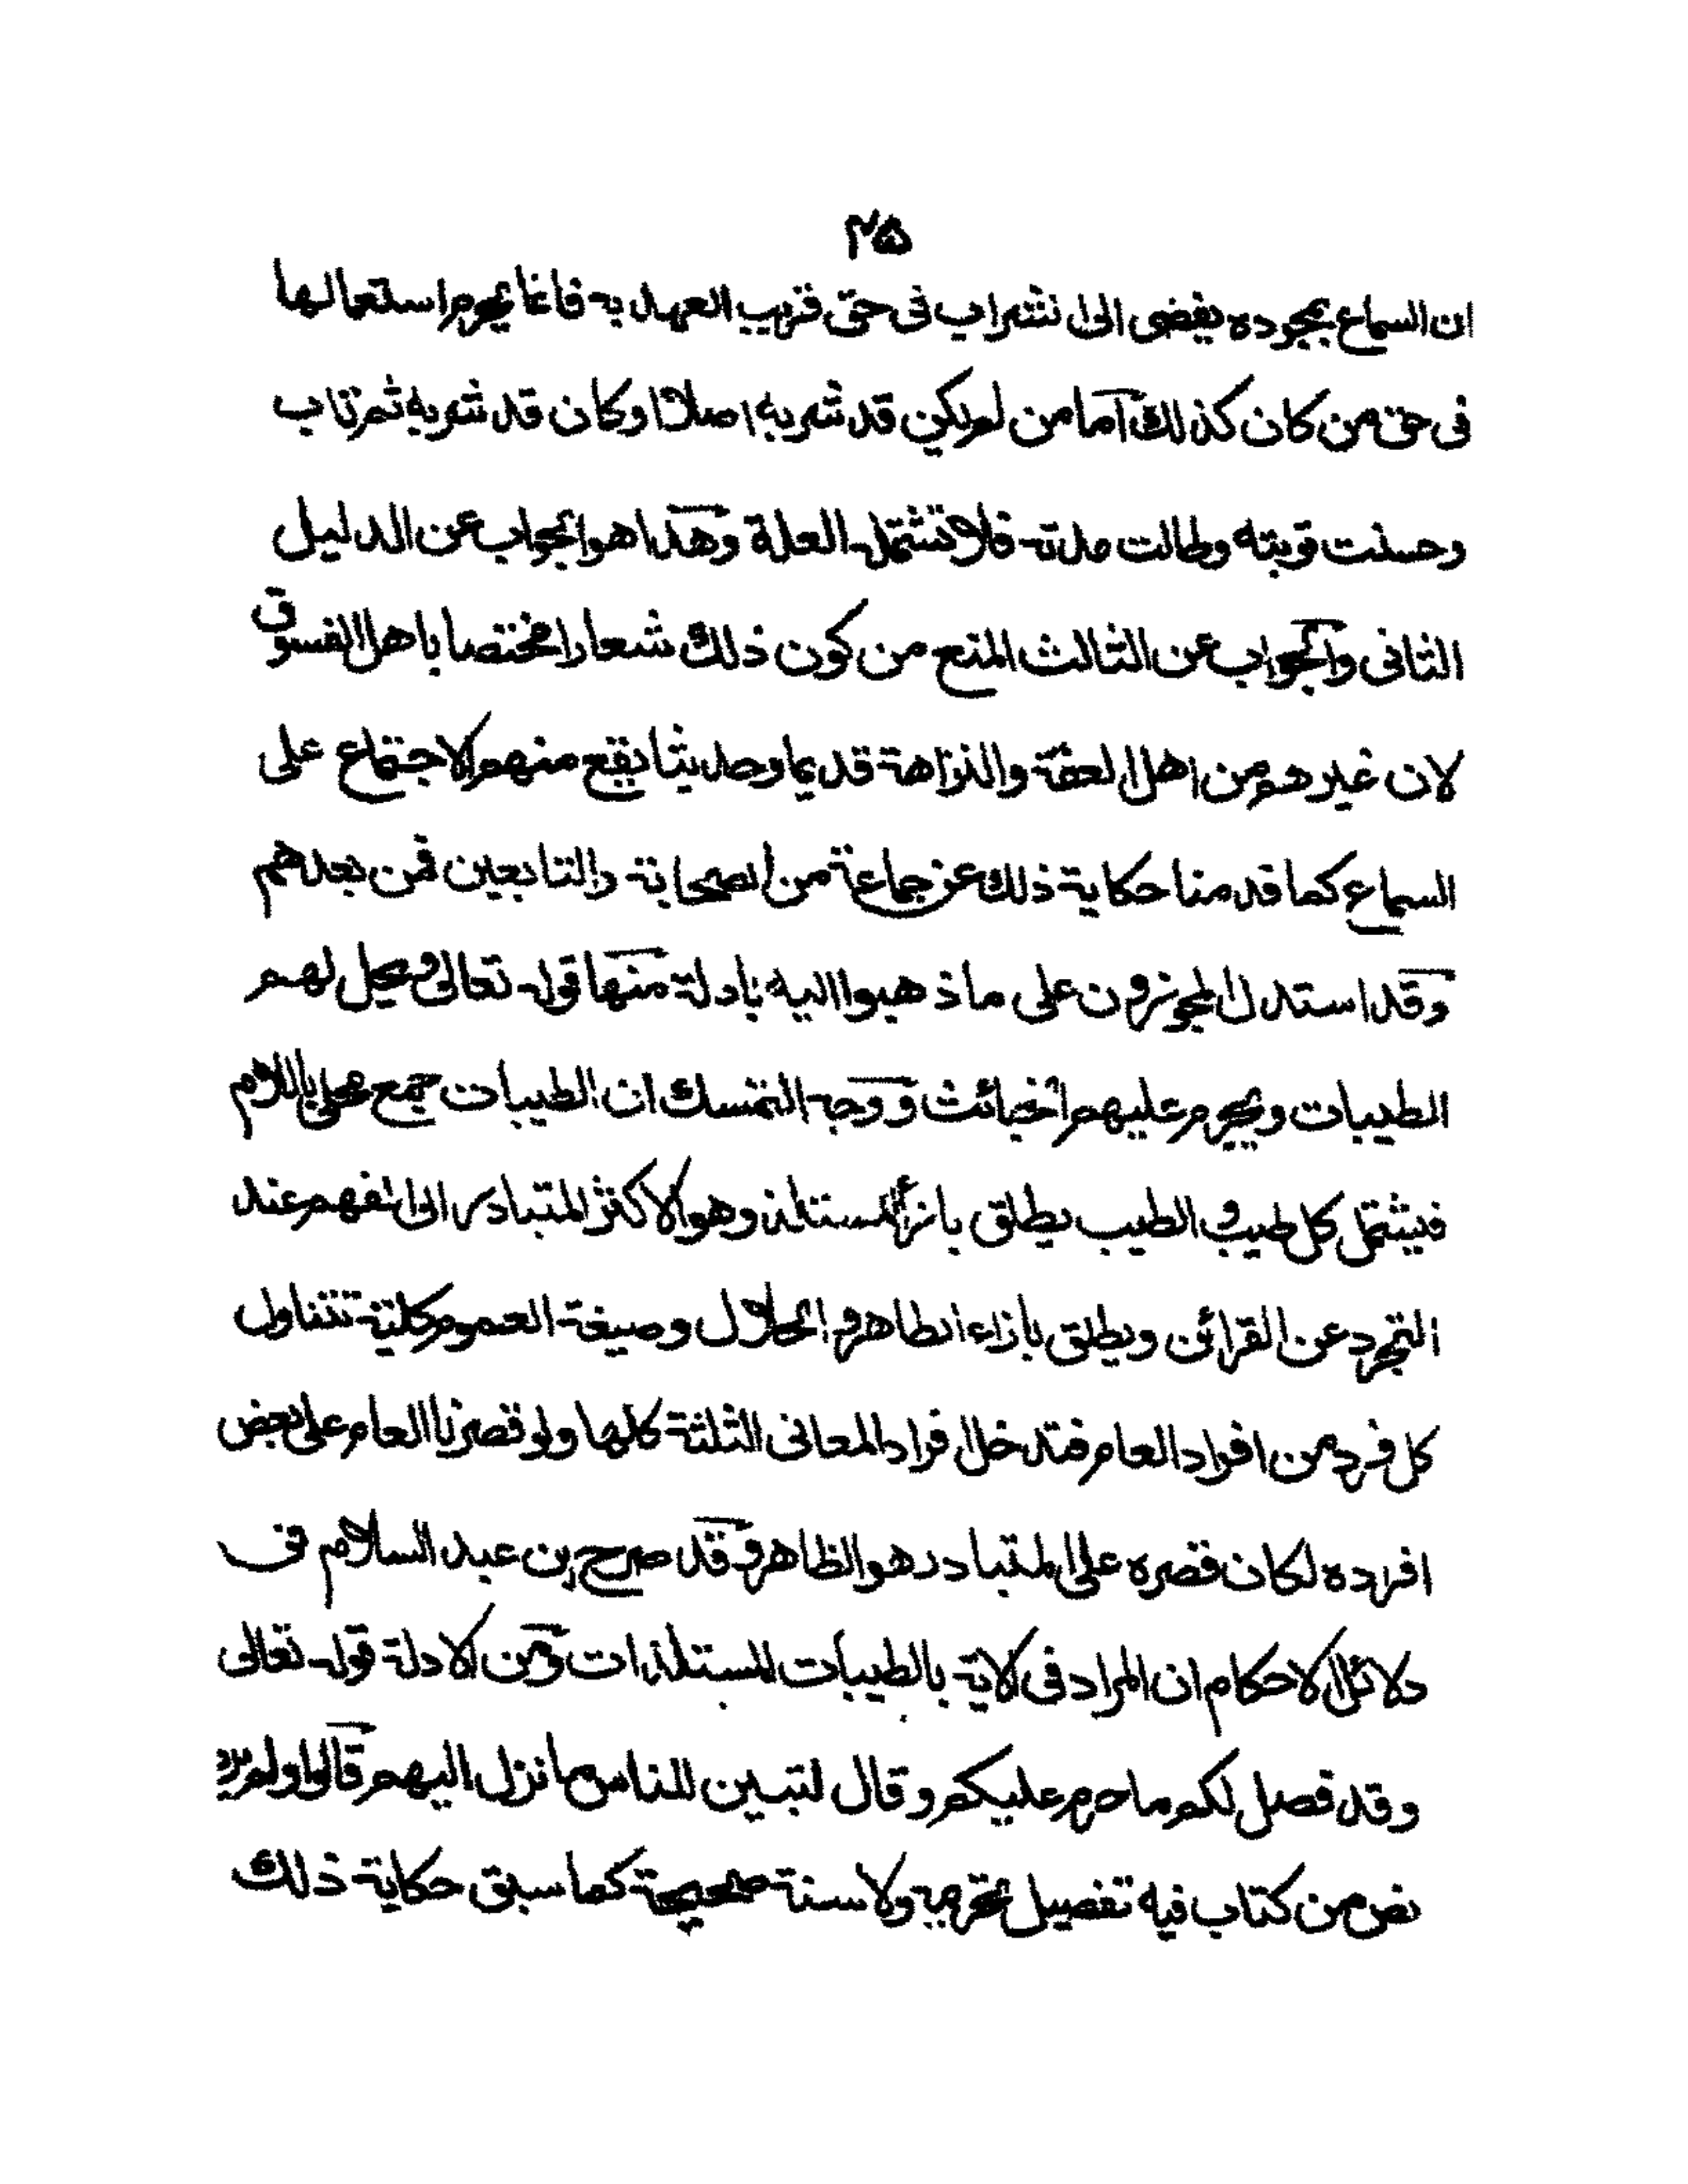 ٢٥
ان السماع بمجرده يفضى الى الشراب فى حق قريب العهد به فانما يحرم استعمالها
فى حق من كان كذلك اما من لم يكن قد شربه اصلا او كان قد شربه ثم تاب
وحسنت توبته وطالت مدته فلا تشتمله العلة وهذا هو الجواب عن الدليل
الثانى والجواب عن الثالث المنع من كون ذلك شعارا مختصا باهل الفسوق
لان غيرهم من اهل العفة والنزاهة قديما وحديثا يقع منهم الاجتماع على
السماع كما قدمنا حكاية ذلك عن جماعة من الصحابة والتابعين فمن بعدهم
وقد استدل المجوزون على ما ذهبوا اليه بادلة منها قوله تعالى ويحل لهم
الطيبات ويحرم عليهم الخبائث ووجه التمسك ان الطيبات جمع محلى باللام
فيشتمل كل طيب والطيب يطلق بازأ المستلذ وهو الاكثر المتبادر الى الفهم عند
التجرد عن القرائن ويطلق بازاء الطاهر والحلال وصيغة العموم كلية تتناول
كل فرد من افراد العام فتدخل افراد المعانى الثلثة كلها ولو قصرنا العام على بعض
افرده لكان قصره على المتبادر هو الظاهر وقد صرح بن عبد السلام فى
دلائل الاحكام ان المراد فى الاية بالطيبات المستلذات ومن الادلة قوله تعالى
وقد فصل لكم ما حرم عليكم وقال لتبين للناس ما نزل اليهم قالوا ولم يرد
نص من كتاب فيه تفصيل تحريمه ولا سنة صحيحة كما سبق حكاية ذلك